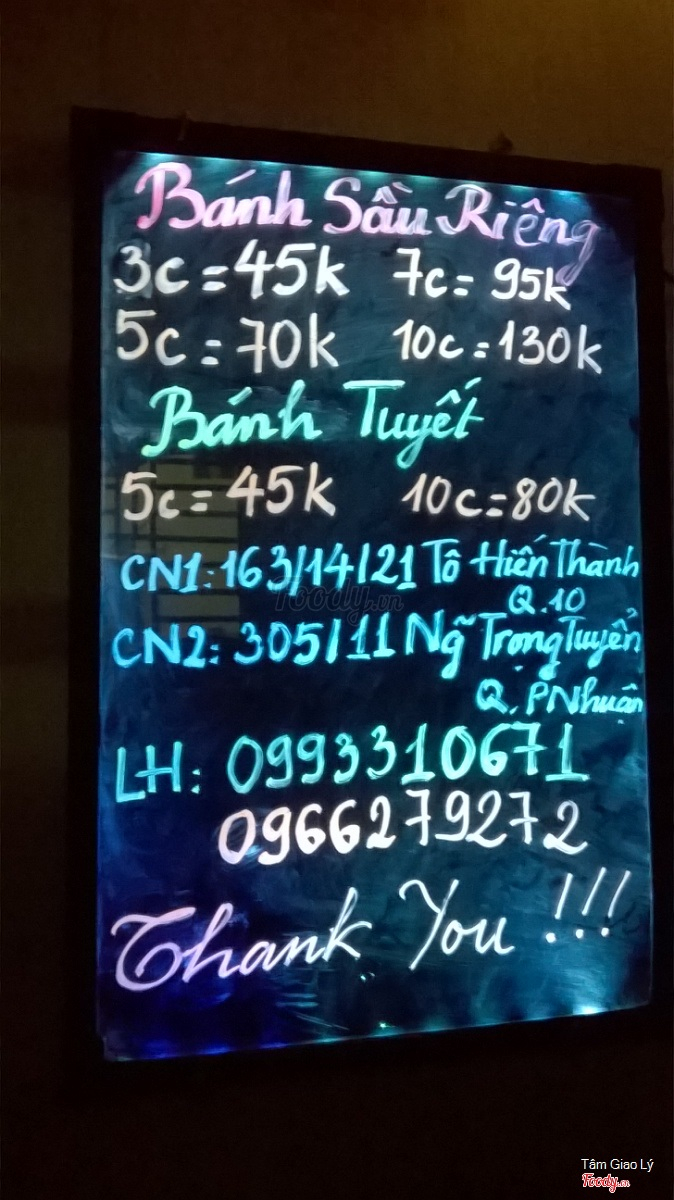 Bánh Sầu Riêng
3c = 45k 7c = 95k
5c = 70k 10c = 130k
Bánh Tuyết
5c = 45k 10c = 80k
CN1: 163/14/21 Tô Hiến Thành
Q.10
Foody.vn
CN2: 305/11 Ng̃ Trọng Tuyển
Q. PNhuận
LH: 0993310671
0966279272
Thank You !!!
Tâm Giao Lý
Foody.vn